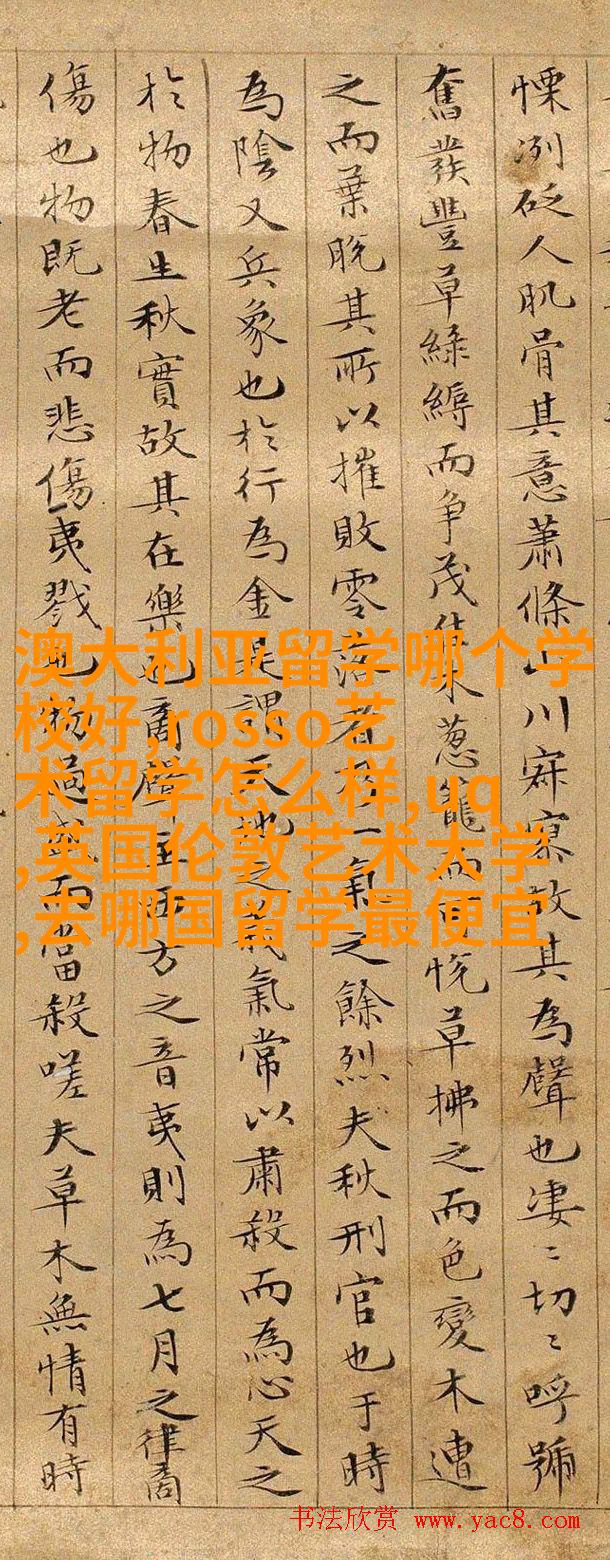 慄冽砭人肌骨其意蕭條山川寂寥故其為聲也淒〻切〻呼號
奮發豐草綠縟而争茂佳木葱籠而可悅草拂之而色變木遭
之而葉脫其所以摧敗零落者一氣之餘烈夫秋刑官也于時
為陰又兵象也於行為金是謂天地之義氣常以肅殺而為心天之
於物春生秋實故其在樂也商聲主西方之音夷則為七月之律商
傷也物既老而悲傷夷戮也物過盛而當殺嗟夫草木無情有時
澳大利亚留学哪个学
校好,rosso艺
术留学怎么样,uq
,英国伦敦艺术大学
,去哪国留学最便宜
书法欣赏 www.yac8.com